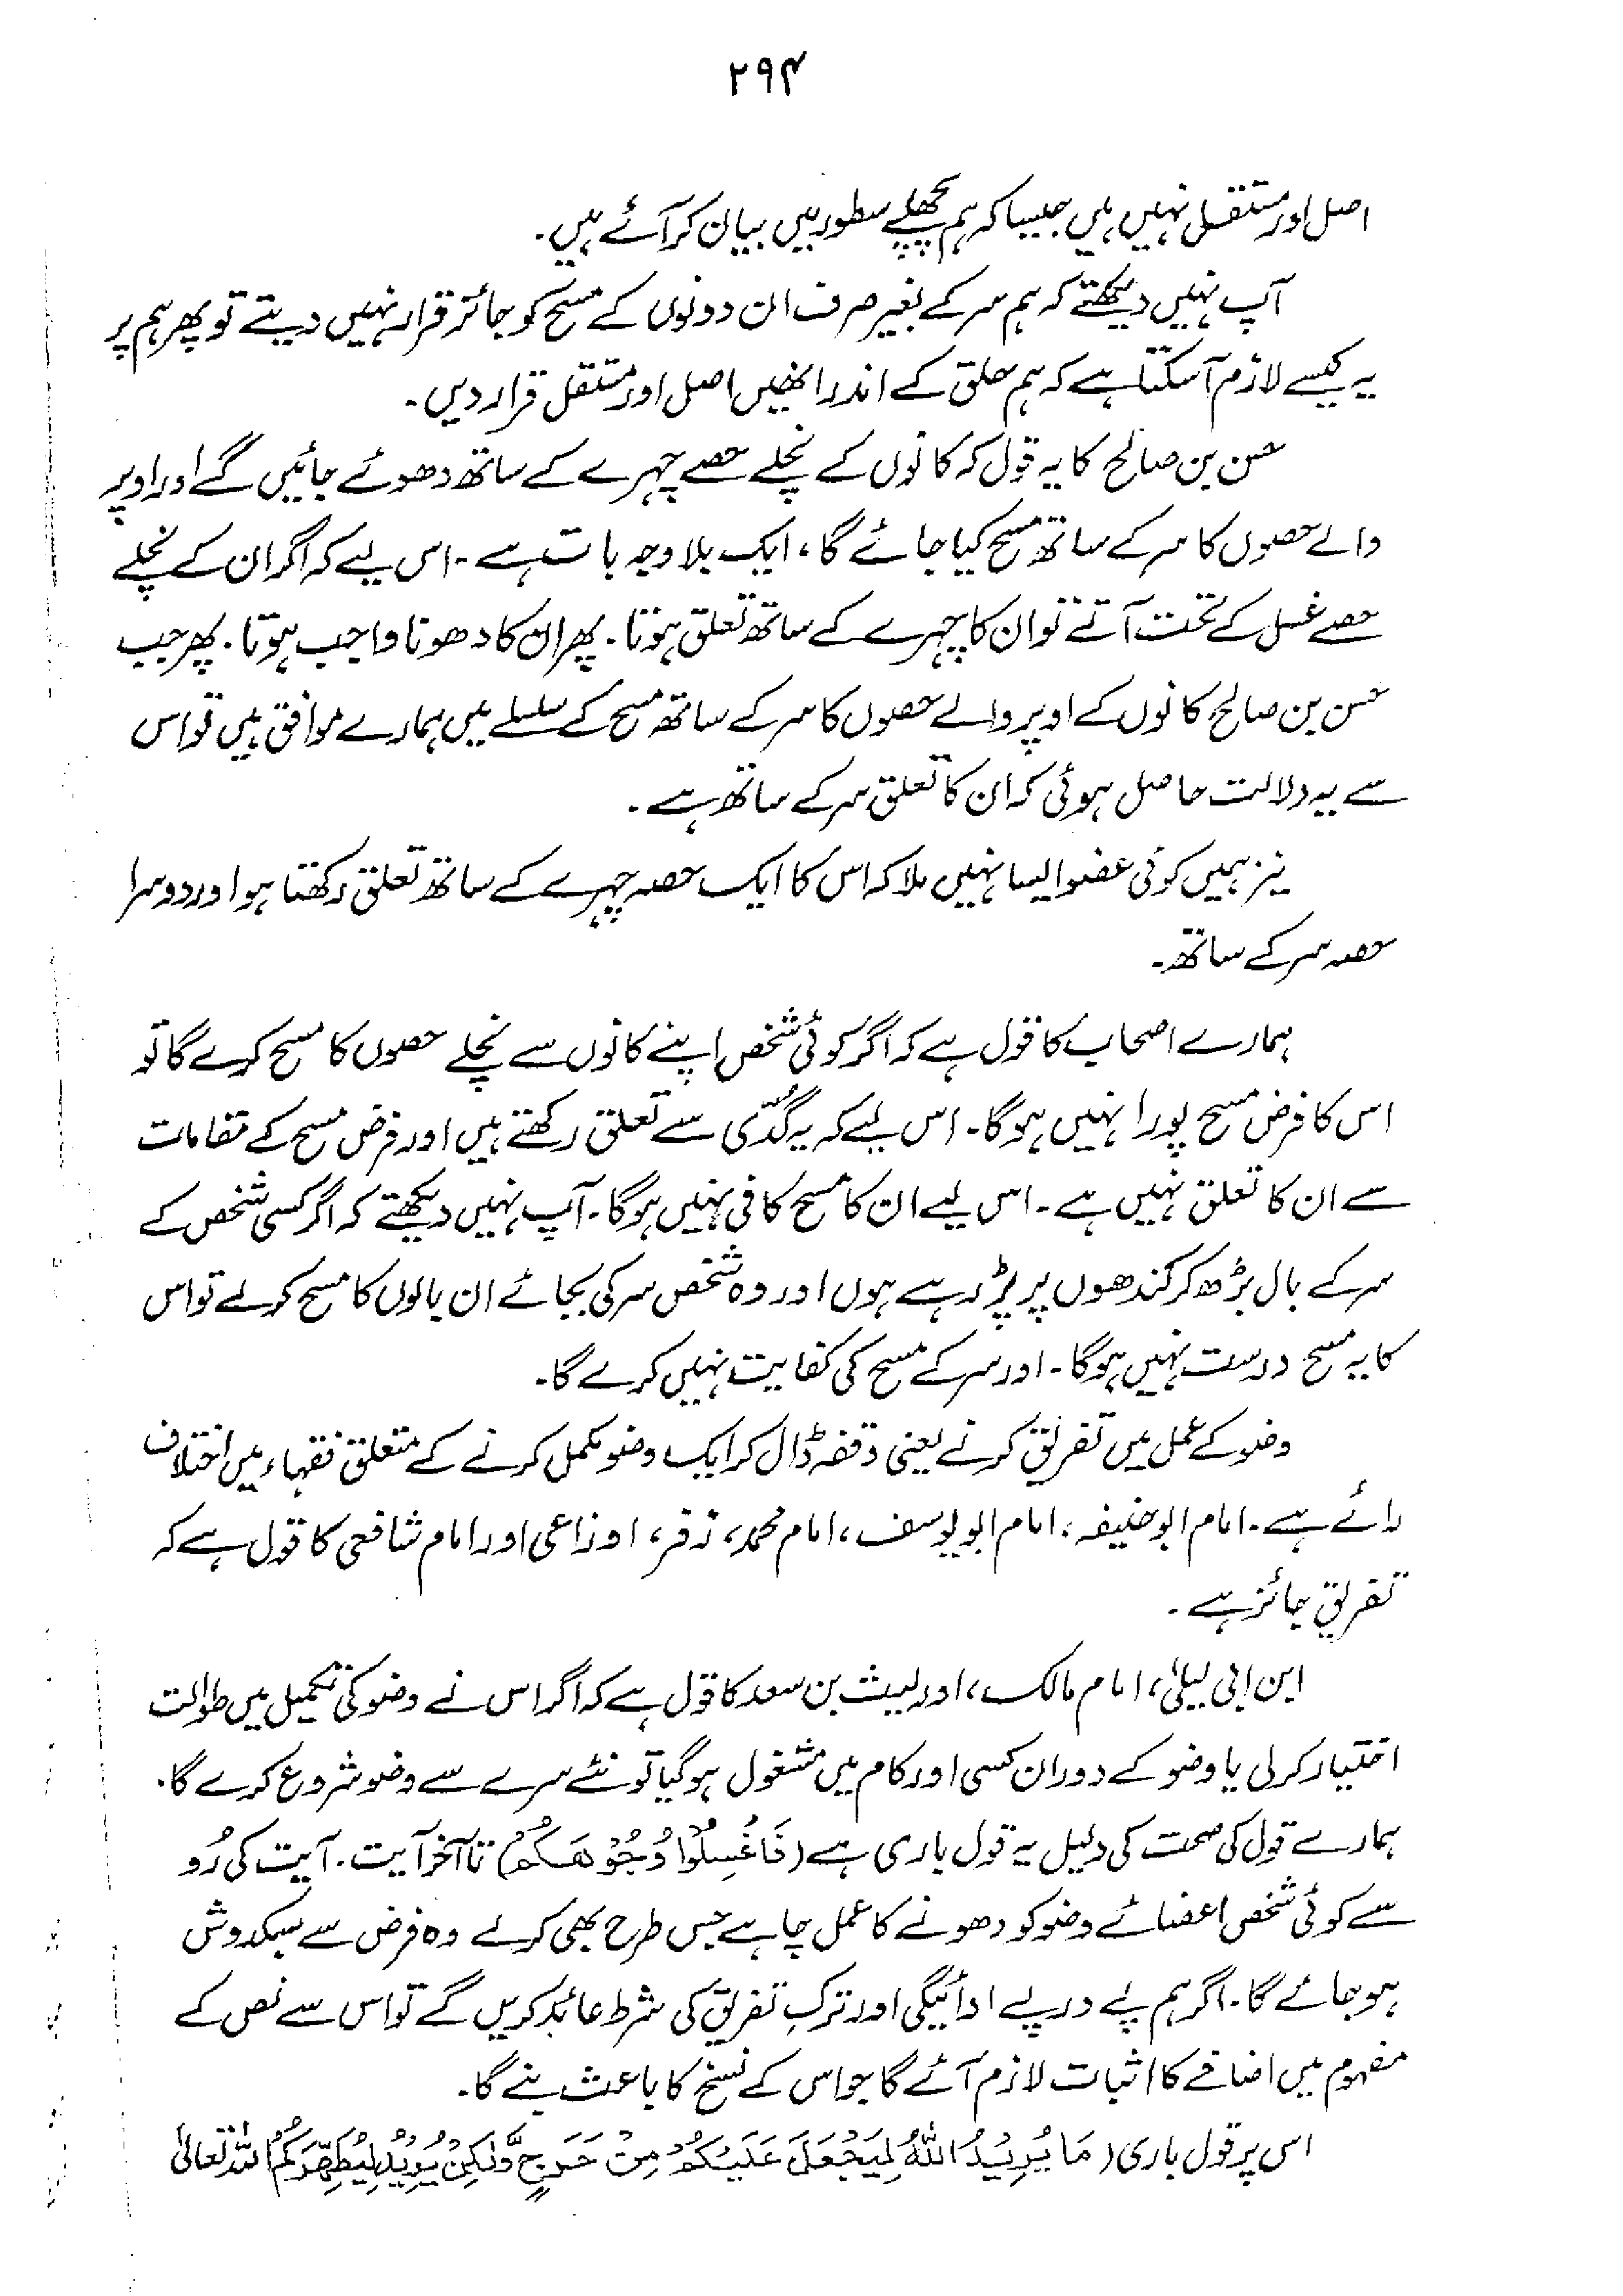 ۲۹۴
اصل اور مستقل نہیں ہیں جیسا کہ ہم پچھلے سطور میں بیان کر آئے ہیں۔
آپ نہیں دیکھتے کہ ہم سر کے بغیر صرف ان دونوں کے مسح کو جائز قرار نہیں دیتے تو پھر ہم پر
یہ کیسے لازم آ سکتا ہے کہ ہم حلق کے اندر انھیں اصل اور مستقل قرار دیں۔
حسن بن صالح کا یہ قول کہ کانوں کے نچلے حصے چہرے کے ساتھ دھوئے جائیں گے اور اوپر
والے حصوں کا سر کے ساتھ مسح کیا جائے گا، ایک بلا وجہ بات ہے۔ اس لیے کہ اگر ان کے نچلے
حصے غسل کے تحت آتے تو ان کا چہرے کے ساتھ تعلق ہوتا۔ پھر ان کا دھونا واجب ہوتا۔ پھر جب
حسن بن صالح کانوں کے اوپر والے حصوں کا سر کے ساتھ مسح کے سلسلے میں ہمارے موافق ہیں تو اس
سے یہ دلالت حاصل ہوئی کہ ان کا تعلق سر کے ساتھ ہے۔
نیز ہمیں کوئی عضو ایسا نہیں ملا کہ اس کا ایک حصہ چہرے کے ساتھ تعلق رکھتا ہو اور دوسرا
حصہ سر کے ساتھ۔
ہمارے اصحاب کا قول ہے کہ اگر کوئی شخص اپنے کانوں سے نچلے حصوں کا مسح کرے گا تو
اس کا فرض مسح پورا نہیں ہوگا۔ اس لیے کہ یہ گُدّی سے تعلق رکھتے ہیں اور فرض مسح کے مقامات
سے ان کا تعلق نہیں ہے۔ اس لیے ان کا مسح کافی نہیں ہوگا۔ آپ نہیں دیکھتے کہ اگر کسی شخص کے
سر کے بال بڑھ کر کندھوں پر پڑ رہے ہوں اور وہ شخص سر کی بجائے ان بالوں کا مسح کر لے تو اس
کا یہ مسح درست نہیں ہوگا۔ اور سر کے مسح کی کفایت نہیں کرے گا۔
وضو کے عمل میں تفریق کرنے یعنی وقفہ ڈال کر ایک وضو مکمل کرنے کے متعلق فقہاء میں اختلاف
رائے ہے۔ امام ابو حنیفہ، امام ابو یوسف، امام محمد، زفر، اوزاعی اور امام شافعی کا قول ہے کہ
تفریق جائز ہے۔
ابن ابی لیلیٰ، امام مالک، اور لیث بن سعد کا قول ہے کہ اگر اس نے وضو کی تکمیل میں طوالت
اختیار کر لی یا وضو کے دوران کسی اور کام میں مشغول ہو گیا تو نئے سرے سے وضو شروع کرے گا۔
ہمارے قول کی صحت کی دلیل یہ قول باری ہے (فَاغْسِلُوْا وُجُوْهَكُمْ) تا آخر آیت۔ آیت کی رُو
سے کوئی شخص اعضائے وضو کو دھونے کا عمل چاہے جس طرح بھی کر لے وہ فرض سے سبکدوش
ہو جائے گا۔ اگر ہم پے در پے ادائیگی اور ترکِ تفریق کی شرط عائد کریں گے تو اس سے نص کے
مفہوم میں اضافے کا اثبات لازم آئے گا جو اس کے نسخ کا باعث بنے گا۔
اس پر قول باری (مَا يُرِيْدُ اللّٰهُ لِيَجْعَلَ عَلَيْكُمْ مِنْ حَرَجٍ وَّلٰكِنْ يُرِيْدُ لِيُطَهِّرَكُمْ اللہ تعالیٰ